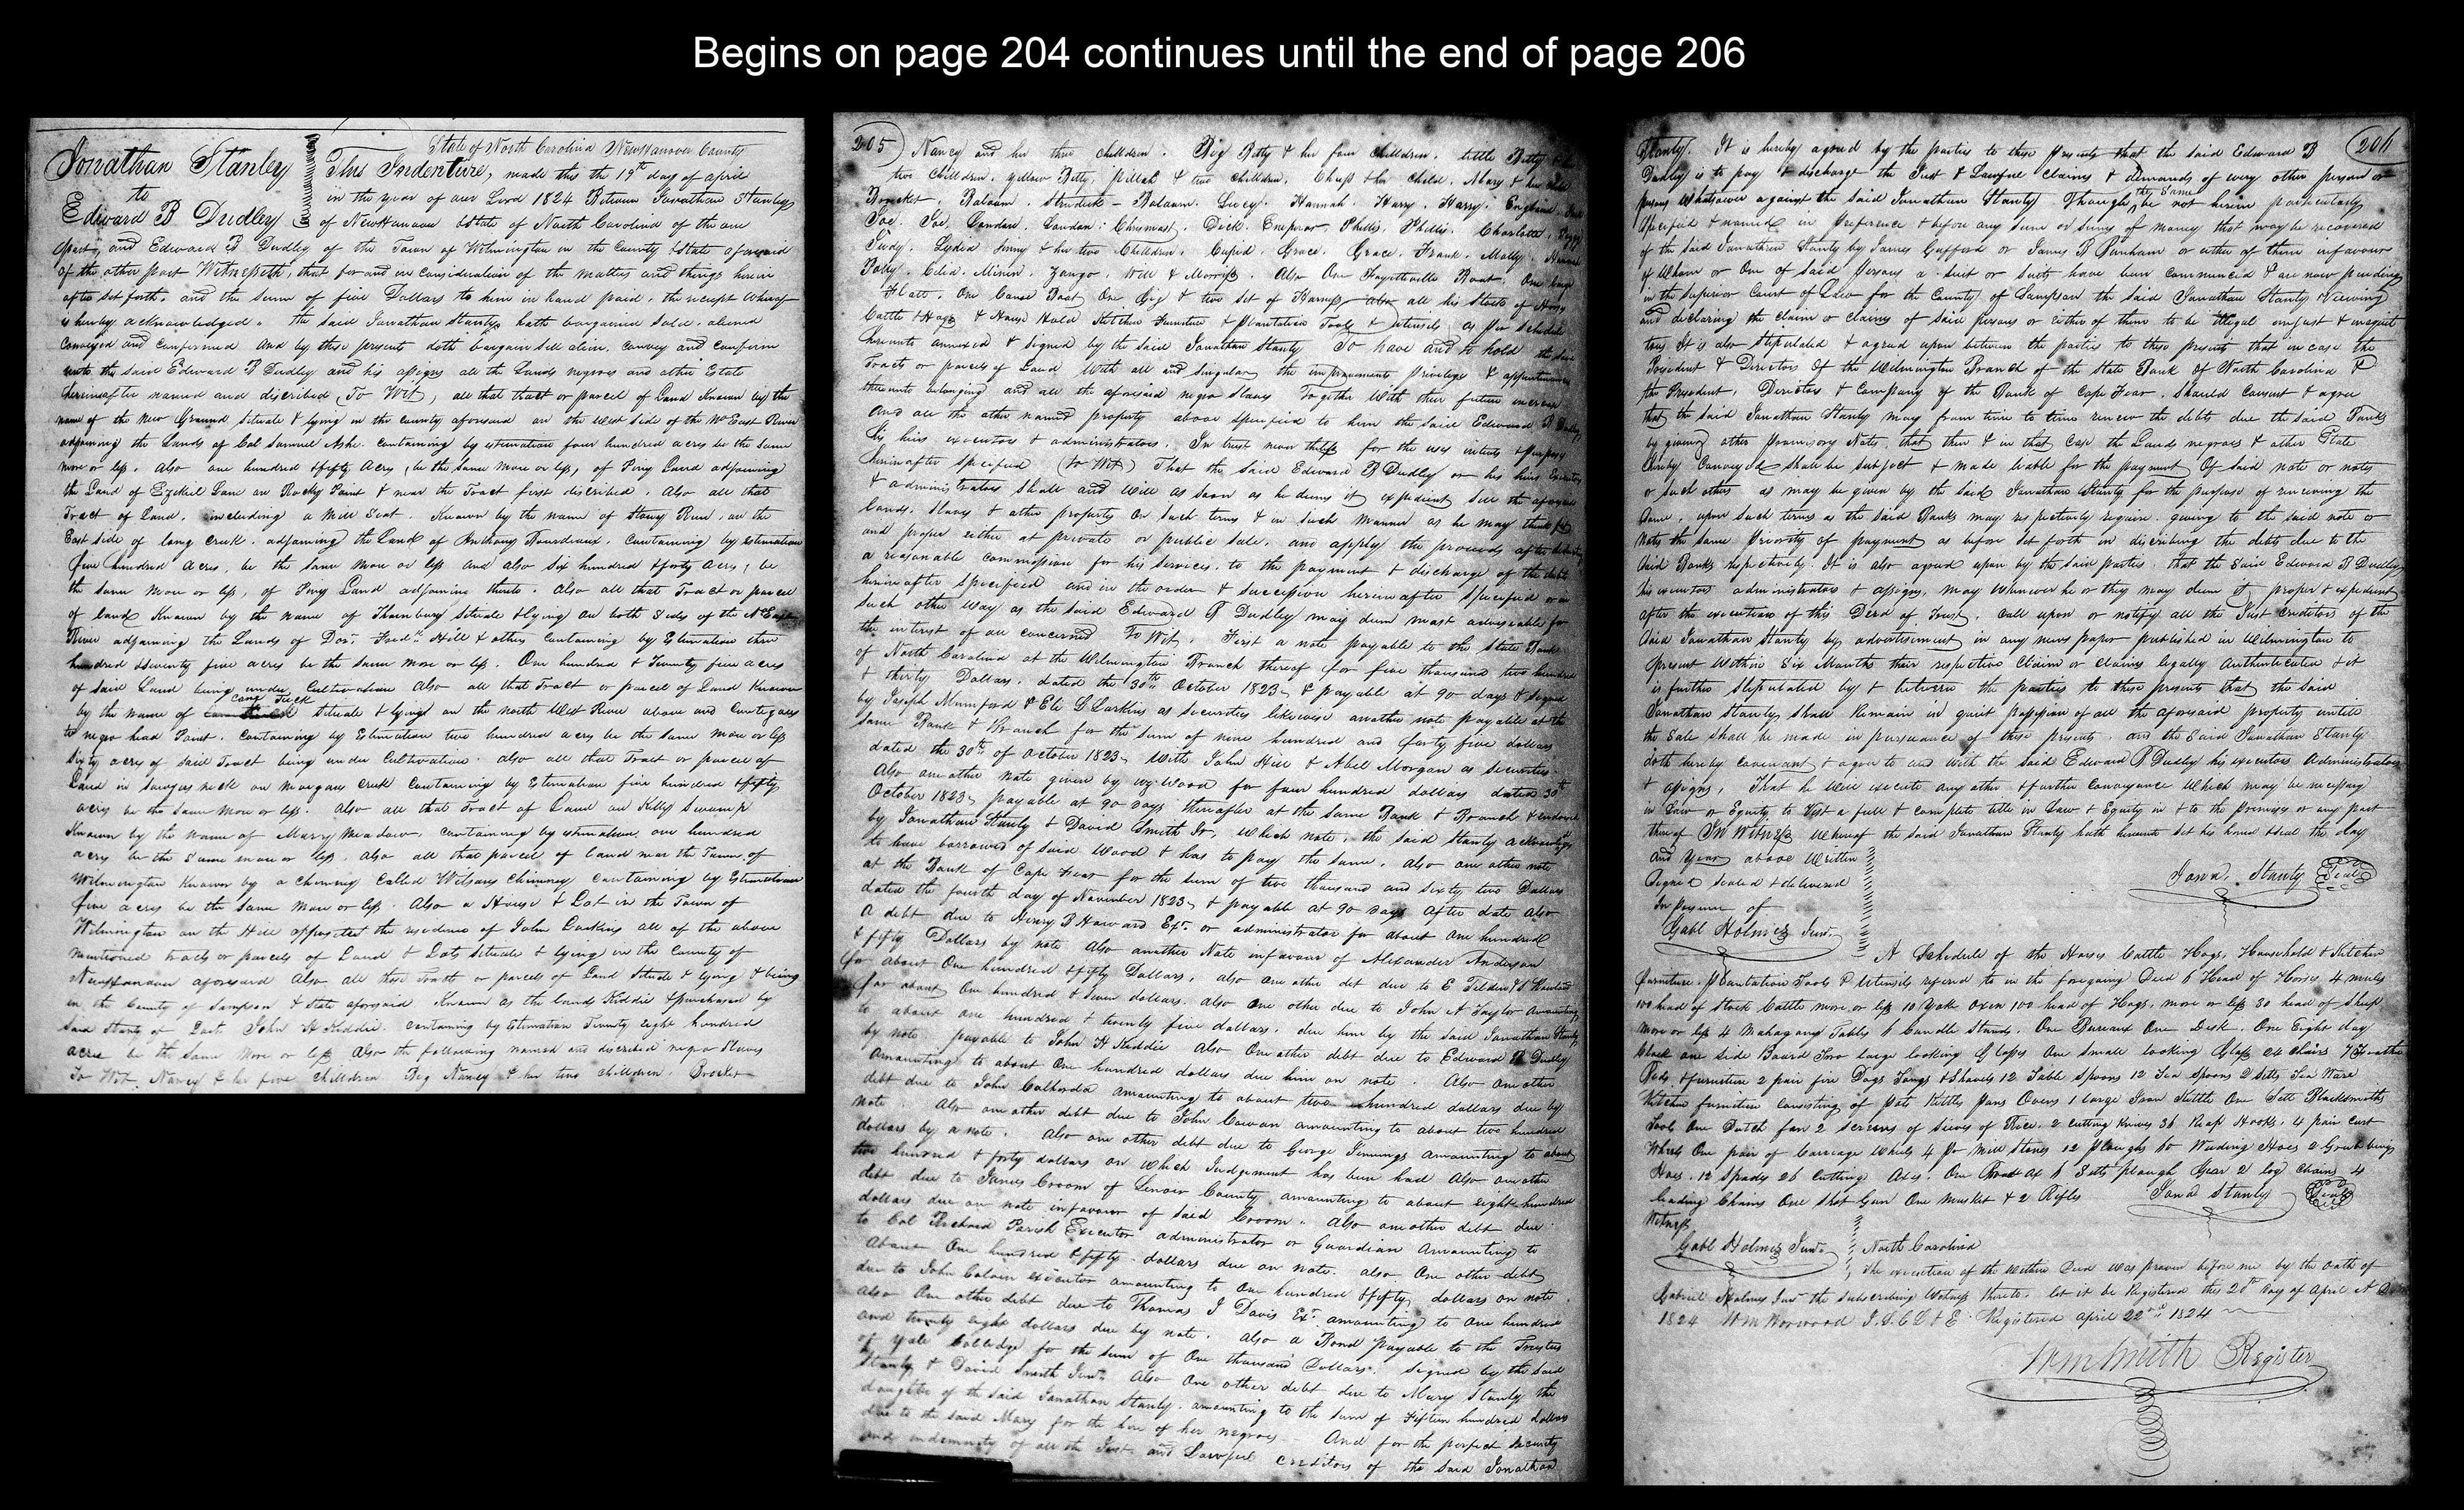 Begins on page 204 continues until the end of page 206
State of North Carolina New Hanover County
Jonathan Stanley
to
Edward B Dudley
This Indenture, made this the 19th day of april
in the year of our Lord 1824 Between Jonathan Stanly
of New Hanover & State of North Carolina of the one
part, and Edward B Dudley of the Town of Wilmington in the County & State aforesaid
of the other part Witnesseth, that for and in consideration of the matters and things herein
after set forth, and the sum of five Dollars to him in hand paid, the receipt whereof
is hereby acknowledged. the said Jonathan Stanly hath bargained Sold. aliened
conveyed and confirmed and by these presents doth bargain sell alien, convey and confirm
unto the said Edward B Dudley and his assigns all the Lands negroes and other Estate
hereinafter named and discribed, To Wit, all that tract or parcel of Land Known by the
name of the New Ground, Situate & lying in the County aforesaid on the West side of the No East River
adjoining the Lands of Col Samuel Ashe. containing by estimation four hundred acres be the same
more or less. Also one hundred & fifty acres, be the same more or less, of Piny Land adjoining
the Land of Ezekiel Lane on Rocky Point & near the Tract first discribed. Also all that
Tract of Land. including a Mill Seat. Known by the name of Stony Run, on the
East side of long Creek. adjoining the Land of Anthony Bourdeaux. containing by estimation
five hundred acres, be the same more or less and also six hundred & forty acres, be
the same more or less, of Piny Land adjoining thereto. Also all that Tract or parcel
of land Known by the name of Thornbury situate & lying on both Sides of the N East
River adjoining the Lands of Doct. Fredk. Hill & others containing by Estimation three
hundred & seventy five acres be the same more or less. One hundred & Twenty five acres
of said Land being under Cultivation Also all that Tract or parcel of Land Known
by the name of Cane Tuck situate & lying on the north West River above and Contiguous
to negro head Point. Containing by Estimation two hundred acres be the same more or less
sixty acres of said Tract being under Cultivation. also all that Tract or parcel of
Land in neck on Morgans Creek Containing by Estimation five hundred & fifty
acres be the same more or less. Also all that Tract of Land on Kelly Swamp
Known by the name of Marry Meadow, Containing by estimation one hundred
acres be the Same more or less. Also all that parcel of land near the Town of
Wilmington Known by a chimney Called Wilsons Chimney containing by Estimation
five acres be the same more or less. Also a House & Lot in the Town of
Wilmington on the Hill opposite the residence of John Gaskins all of the above
mentioned tracts or parcels of Land & Lots situate & lying in the County of
New Hanover aforesaid Also all those Tracts or parcels of Land Situate & lying & being
in the County of Sampson & State aforesaid. Known as the lands Kiddie & purchased by
Said Stanly of Doct. John H Kiddie. containing by Estimation Twenty eight hundred
acres be the same more or less Also the following named and discribed negro Slaves
To Wit. Nancy & her five children. Big Nancy & her two children. Brocket
205
Nancy and her three children. Big Betty & her four children. little Betty & her
two children. yellow Betty. Pillah & two children. Chris & her Child. Mary & her child
Brocket. Balaam. Balaam. Lucy. Hannah. Harry. Harry. England.
Joe. Joe. London. London. Christmas. Dick. Emperor. Phillis. Phillis. Charlotte. Peggy
Judy. Lydia Jenny & her two Children. Cupid. Grace. Grace. Frank. Molly.
Dolly. Celia. Miner. Zango. Will & Morriss. Also One Fayetteville Boat. One large
Flatt. One Canoe Boat One Gig & two set of Harness also all his Stock of Horses
Cattle & Hogs & House Hold Kitchen Furniture & Plantation Tools & utensils as per schedule
hereunto annexed & signed by the said Jonathan Stanly To have and to hold the said
Tracts or parcels of Land With all and singular the improvements Privileges & appurtenances
thereunto belonging and all the aforesaid negro Slaves Together With their future increase
And all the other named property above specified to him the said Edward B Dudley
his heirs executors & administrators. In trust nevertheless for the uses intents & purposes
hereinafter specified (to Wit) That the said Edward B Dudley or his heirs Executors
& administrators Shall and Will as soon as he deems it expedient sell the aforesaid
lands. Slaves & other property On such terms & in such manner as he may think fit
and proper either at private or public Sale. and apply the proceeds after deducting
a reasonable commission for his services. to the payment & discharge of the debts
hereinafter specified and in the order & succession hereinafter specified or in
such other way as the said Edward B Dudley may deem most adviseable for
the interest of all concerned To Wit, First a note payable to the State Bank
of North Carolina at the Wilmington Branch thereof for five thousand two hundred
& thirty Dollars. dated the 30th October 1823 & payable at 90 days & signed
by Joseph Mumford & Eli L Larkins as securities likewise another note payable at the
same Bank & Branch for the sum of nine hundred and forty five dollars
dated the 30th of October 1823, With John Hill & Abel Morgan as securities
Also one other note given by Wood for four hundred dollars dated 30th
October 1823, payable at 90 days thereafter at the same Bank & Branch & endorsed
by Jonathan Stanly & David Smith Jr, Which note, the said Stanly acknowledges
to have borrowed of said Wood & has to pay the same. Also one other note
at the Bank of Cape Fear for the sum of two thousand and sixty two Dollars
dated the fourth day of November 1823, & payable at 90 days after date Also
A debt due to Henry B Howard Exr. or administrator for about One hundred
& fifty Dollars by note Also another Note in favour of Alexander Anderson
for about One hundred & fifty Dollars, also one other det due to E Tilden
for about One hundred & seven dollars. also One other due to John A Taylor amounting
to about one hundred & twenty five dollars. due him by the said Jonathan Stanly
by note payable to John H Kiddie Also One other debt due to Edward B Dudley
Amounting to about One hundred dollars due him on note. Also one other
debt due to John Calhorda amounting to about two hundred dollars due by
note. Also one other debt due to John Cowan amounting to about two hundred
dollars by a note. Also one other debt due to George Jennings amounting to about
two hundred & forty dollars on which Judgement has been had Also another
debt due to James Croom of Lenoir County amounting to about eight hundred
dollars due on note in favour of said Croom. Also one other debt due
to Col Richard Parish Executor administrator or Guardian Amounting to
About One hundred & fifty dollars due on note. also One other debt
due to John Colvin executor amounting to One hundred & fifty dollars on note
also One other debt due to Thomas J Davis Exr. amounting to One hundred
and twenty eight dollars due by note. Also a Bond payable to the Trustees
of Yale Colledge for the sum of One thousand Dollars. signed by the said
Stanly & David Smith Junr. Also One other debt due to Mary Stanly the
daughter of the said Jonathan Stanly. amounting to the sum of Fifteen hundred dollars
due to the said Mary for the hire of her negroes And for the perfect security
and indemnity of all the Just and Lawful creditors of the said Jonathan
206
Stanly. It is hereby agreed by the parties to these presents that the said Edward B
Dudley is to pay & discharge the Just & Lawful claims & demands of every other person or
persons Whatsoever against the said Jonathan Stanly Though the same be not herein particularly
specified & named in preference & before any sum or sums of money that may be recovered
of the said Jonathan Stanly by James Gafford or James B Purham or either of them in favour
of Whom or One of said persons a suit or suits have been commenced & are now pending
in the Superior Court of Law for the County of Sampson the said Jonathan Stanly Viewing
and declaring the claim or claims of said persons or either of them to be illegal unjust & iniquit
tous It is also Stipulated & agreed upon between the parties to these presents that in case the
President & Directors Of the Wilmington Branch of the State Bank of North Carolina &
the President, Directors & Company of the Bank of Cape Fear. Should Consent & agree
that the said Jonathan Stanly may from time to time renew the debts due the said Banks
by giving other promisory Notes, that then & in that Case the Lands negroes & other Estate
thereby Conveyed shall be subject & made liable for the payment Of said note or notes
or such others as may be given by the said Jonathan Stanly for the purpose of renewing the
same, upon such terms as the said Banks may respectively require. giving to the said note or
notes the same Priority of payment as before set forth in discribing the debts due to the
said Banks respectively. It is also agreed upon by the said parties. that the said Edward B Dudley
his executors administrators & assigns, may Whenever he or they may deem it proper & expedient
after the execution of this Deed of Trust, call upon or notify all the Just creditors of the
said Jonathan Stanly by advertisement in any news paper published in Wilmington to
present Within Six Months their respective Claim or Claims legally authenticated & it
is further Stipulated by & between the parties to these presents that the said
Jonathan Stanly Shall Remain in quiet possession of all the aforesaid property untill
the Sale shall be made in pursuance of these presents. and the said Jonathan Stanly
doth hereby covenant & agree to and with the said Edward B Dudley his executors Administrators
& assigns, That he Will execute any other & further Conveyance Which may be necessary
in Law or Equity to Vest a full & complete title in Law & Equity in & to the premises or any part
thereof In Witness Whereof the said Jonathan Stanly hath hereunto set his hand & seal the day
and Year above Written
Signed Sealed & delivered
In presence of
Gabl Holmes Junr.
Jona. Stanly Seal
A Schedule of the Horses Cattle Hogs, Household & Kitchen
furniture, Plantation Tools & Utensils refered to in the foregoing Deed 6 Head of Horses 4 mules
100 head of Stock Cattle more or less 10 Yoke Oxen 100 head of Hogs, more or less 30 head of Sheep
more or less 4 Mahagany Tables 6 Candle Stands. One Bureaux One Desk. One Eight day
Clock one side Board Two large looking Glasses One small looking Glass 24 Chairs 7 Feather
Beds & furniture 2 pair fire Dogs Tongs & Shovels 12 Table Spoons 12 Tea Spoons 2 Setts Tea Ware
Kitchen furniture consisting of Pots Kettles Pans Ovens 1 large Iron Kettle One Sett Blacksmiths
Tools One Dutch fan 2 Screens of Sieves of Rice. 2 Cutting Knives 36 Reap Hooks. 4 pair Cart
Wheels One pair of Carriage Wheels 4 Pr Mill Stones 12 Ploughs 60 Weeding Hoes 2 Grubbing
Hoes. 12 Spades 26 Cutting Axes. One Broad Ax 6 Setts Plough Gear 2 log Chains 4
leading Chains One Shot Gun One Musket & 2 Rifles
Jona Stanly Seal
Witness
Gabl Holmes Junr.
North Carolina
The execution of the Within Deed was proven before me by the oath of
Gabriel Holmes Junr the subscribing Witness thereto. let it be Registered this 20th day of April A D
1824 Wm Norwood J.S.C.L & E. Registered April 22nd 1824
Wm Smith Register